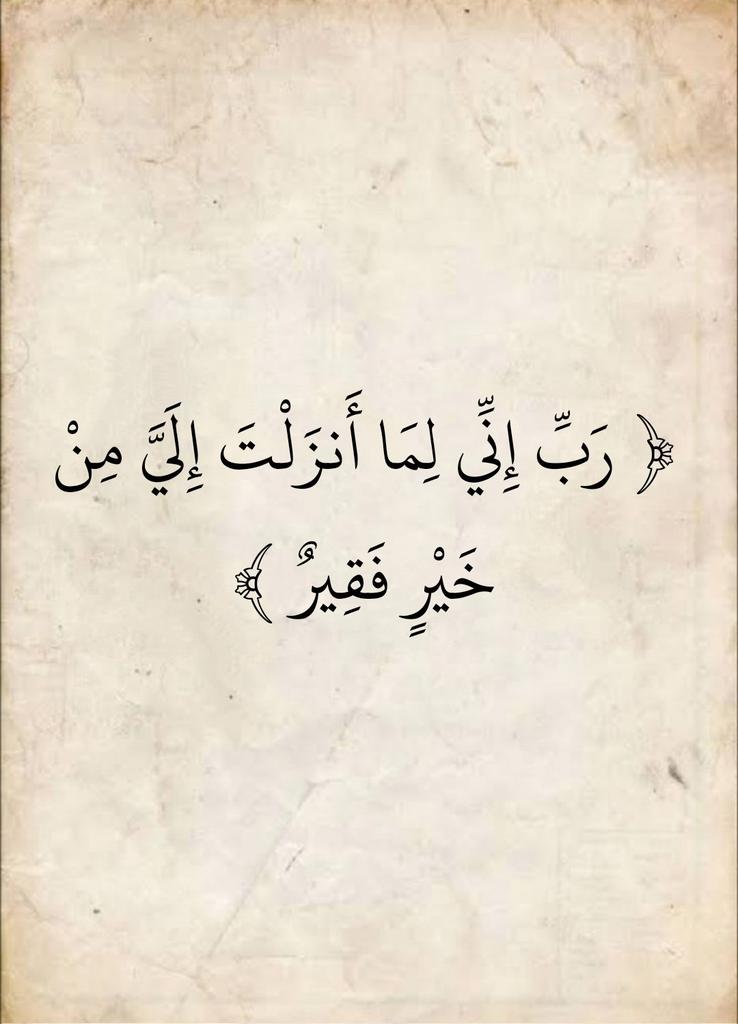 ﴿ رَبِّ إِنِّي لِمَا أَنزَلْتَ إِلَيَّ مِنْ
خَيْرٍ فَقِيرٌ ﴾